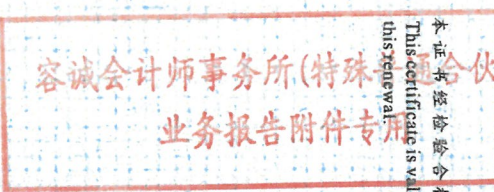 容诚会计师事务所(特殊普通合伙
业务报告附件专用
本证书经检验合格
This certificate is val
this renewal.